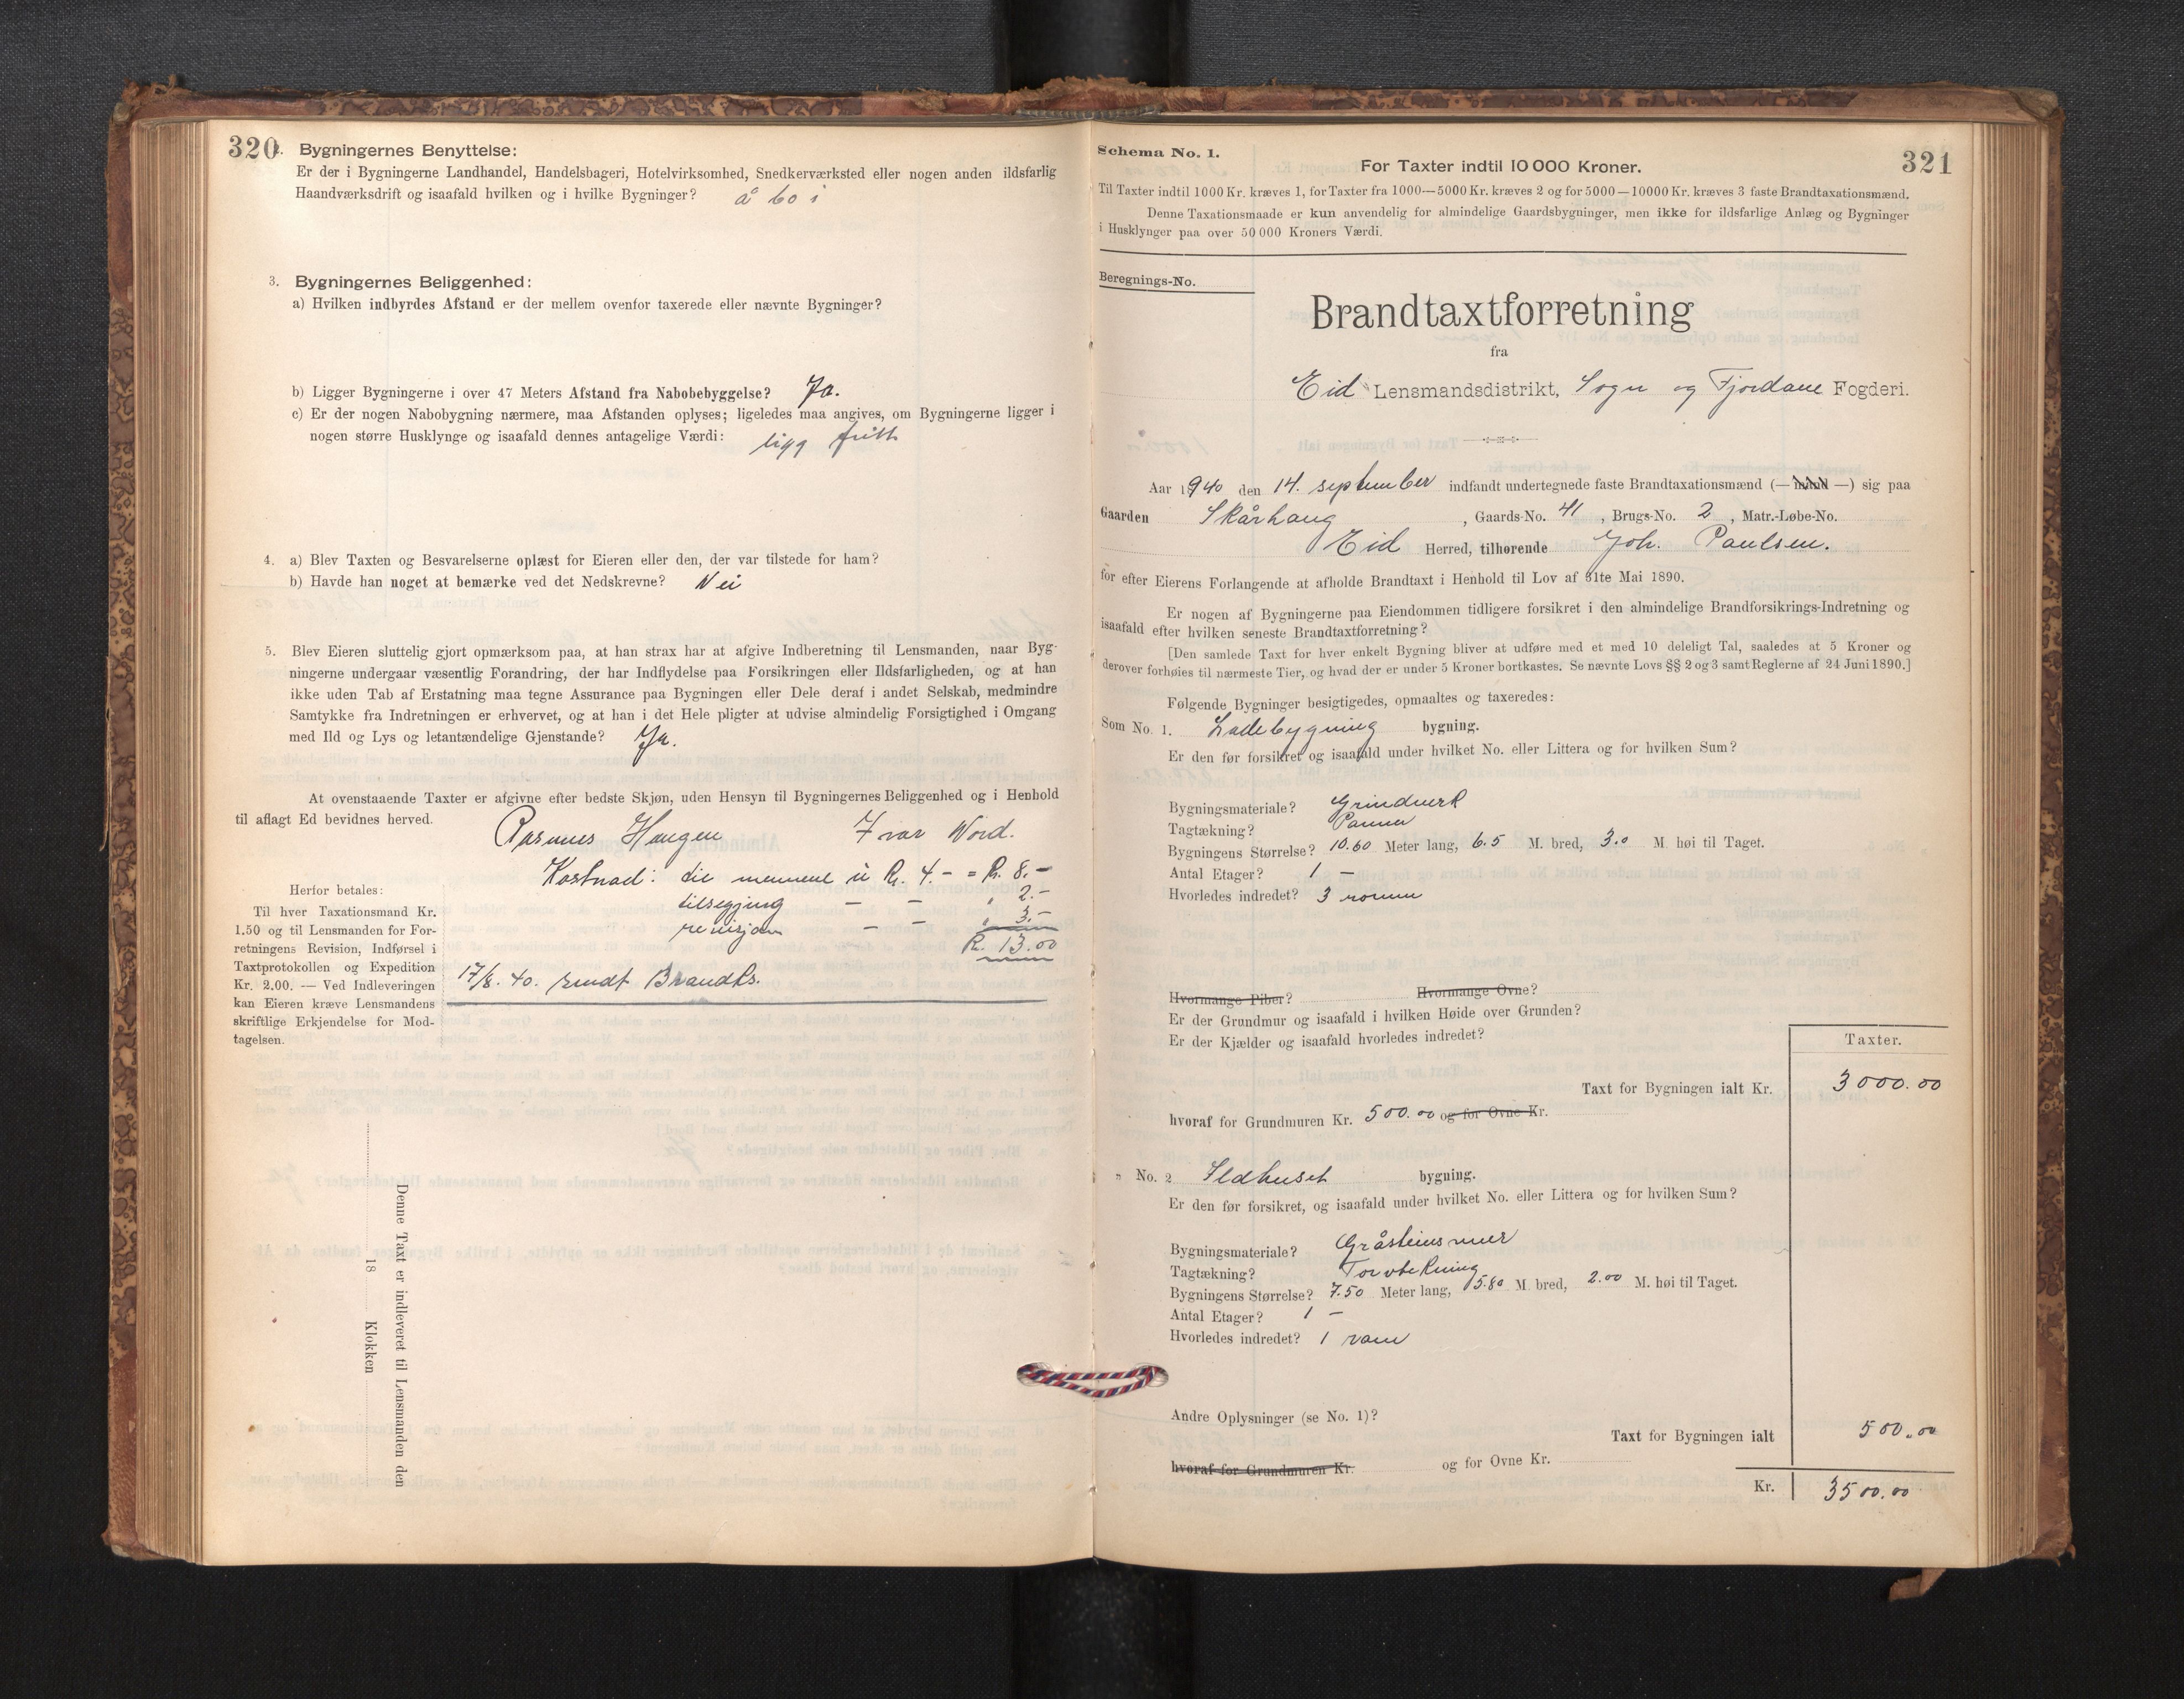 320
2. Bygningernes Benyttelse:
Er der i Bygningerne Landhandel, Handelsbageri, Hotelvirksomhed, Snedkerværksted eller nogen anden ildsfarlig
Haandværksdrift og isaafald hvilken og i hvilke Bygninger? å bo i
3. Bygningernes Beliggenhed:
a) Hvilken indbyrdes Afstand er der mellem ovenfor taxerede eller nævnte Bygninger?
b) Ligger Bygningerne i over 47 Meters Afstand fra Nabobebyggelse? Ja.
c) Er der nogen Nabobygning nærmere, maa Afstanden oplyses; ligeledes maa angives, om Bygningerne ligger i
nogen større Husklynge og isaafald dennes antagelige Værdi: ligg fritt
4. a) Blev Taxten og Besvarelserne oplæst for Eieren eller den, der var tilstede for ham?
b) Havde han noget at bemærke ved det Nedskrevne? Nei
5. Blev Eieren sluttelig gjort opmærksom paa, at han strax har at afgive Indberetning til Lensmanden, naar Byg-
ningerne undergaar væsentlig Forandring, der har Indflydelse paa Forsikringen eller Ildsfarligheden, og at han
ikke uden Tab af Erstatning maa tegne Assurance paa Bygningen eller Dele deraf i andet Selskab, medmindre
Samtykke fra Indretningen er erhvervet, og at han i det Hele pligter at udvise almindelig Forsigtighed i Omgang
med Ild og Lys og letantændelige Gjenstande? Ja.
At ovenstaaende Taxter er afgivne efter bedste Skjøn, uden Hensyn til Bygningernes Beliggenhed og i Henhold
til aflagt Ed bevidnes herved.
Rasmus Haugen Ivar Nord.
Kostnad: til mennene à Kr. 4.- = Kr. 8.-
tilsegjing - - " 2.-
revisjon - - " 3.-
Kr. 13.00
17/8. 40. sendt Brandks.
Herfor betales:
Til hver Taxationsmand Kr.
1.50 og til Lensmanden for For-
retningens Revision, Indførsel i
Taxtprotokollen og Expedition
Kr. 2.00. — Ved Indleveringen
kan Eieren kræve Lensmandens
skriftlige Erkjendelse for Mod-
tagelsen.
Denne Taxt er indleveret til Lensmanden den
18 Klokken
321
Schema No. 1.
For Taxter indtil 10 000 Kroner.
Til Taxter indtil 1000 Kr. kræves 1, for Taxter fra 1000—5000 Kr. kræves 2 og for 5000—10000 Kr. kræves 3 faste Brandtaxationsmænd.
Denne Taxationsmaade er kun anvendelig for almindelige Gaardsbygninger, men ikke for ildsfarlige Anlæg og Bygninger
i Husklynger paa over 50 000 Kroners Værdi.
Beregnings-No.
Brandtaxtforretning
fra
Eid Lensmandsdistrikt, Sogn og Fjordane Fogderi.
Aar 1940 den 14. september indfandt undertegnede faste Brandtaxationsmænd (— mand —) sig paa
Gaarden Skårhaug, Gaards-No. 41, Brugs-No. 2, Matr.-Løbe-No.
Eid Herred, tilhørende Joh. Paulsen.
for efter Eierens Forlangende at afholde Brandtaxt i Henhold til Lov af 31te Mai 1890.
Er nogen af Bygningerne paa Eiendommen tidligere forsikret i den almindelige Brandforsikrings-Indretning og
isaafald efter hvilken seneste Brandtaxtforretning?
[Den samlede Taxt for hver enkelt Bygning bliver at udføre med et med 10 deleligt Tal, saaledes at 5 Kroner og
derover forhøies til nærmeste Tier, og hvad der er under 5 Kroner bortkastes. Se nævnte Lovs §§ 2 og 3 samt Reglerne af 24 Juni 1890.]
Følgende Bygninger besigtigedes, opmaaltes og taxeredes:
Som No. 1. Ladebygning bygning.
Er den før forsikret og isaafald under hvilket No. eller Littera og for hvilken Sum?
Bygningsmateriale? Grindverk
Tagtækning? Panner
Bygningens Størrelse? 10.60 Meter lang, 6.5 M. bred, 3.0 M. høi til Taget.
Antal Etager? 1 –
Hvorledes indredet? 3 romm
Hvormange Piber? Hvormange Ovne?
Er der Grundmur og isaafald i hvilken Høide over Grunden?
Er der Kjælder og isaafald hvorledes indredet?
Taxter.
Taxt for Bygningen ialt Kr. 3000.00
hvoraf for Grundmuren Kr. 500.00 og for Ovne Kr.
" No. 2 Ildhuset bygning.
Er den før forsikret, og isaafald under hvilket No. eller Littera og for hvilken Sum?
Bygningsmateriale? Gråsteinsmur
Tagtækning? Torvtekning
Bygningens Størrelse? 7.50 Meter lang, 5.80 M. bred, 2.00 M. høi til Taget.
Antal Etager? 1 –
Hvorledes indredet? 1 rom
Andre Oplysninger (se No. 1)?
Taxt for Bygningen ialt 500.00
hvoraf for Grundmuren Kr. og for Ovne Kr.
Kr. 3500.00